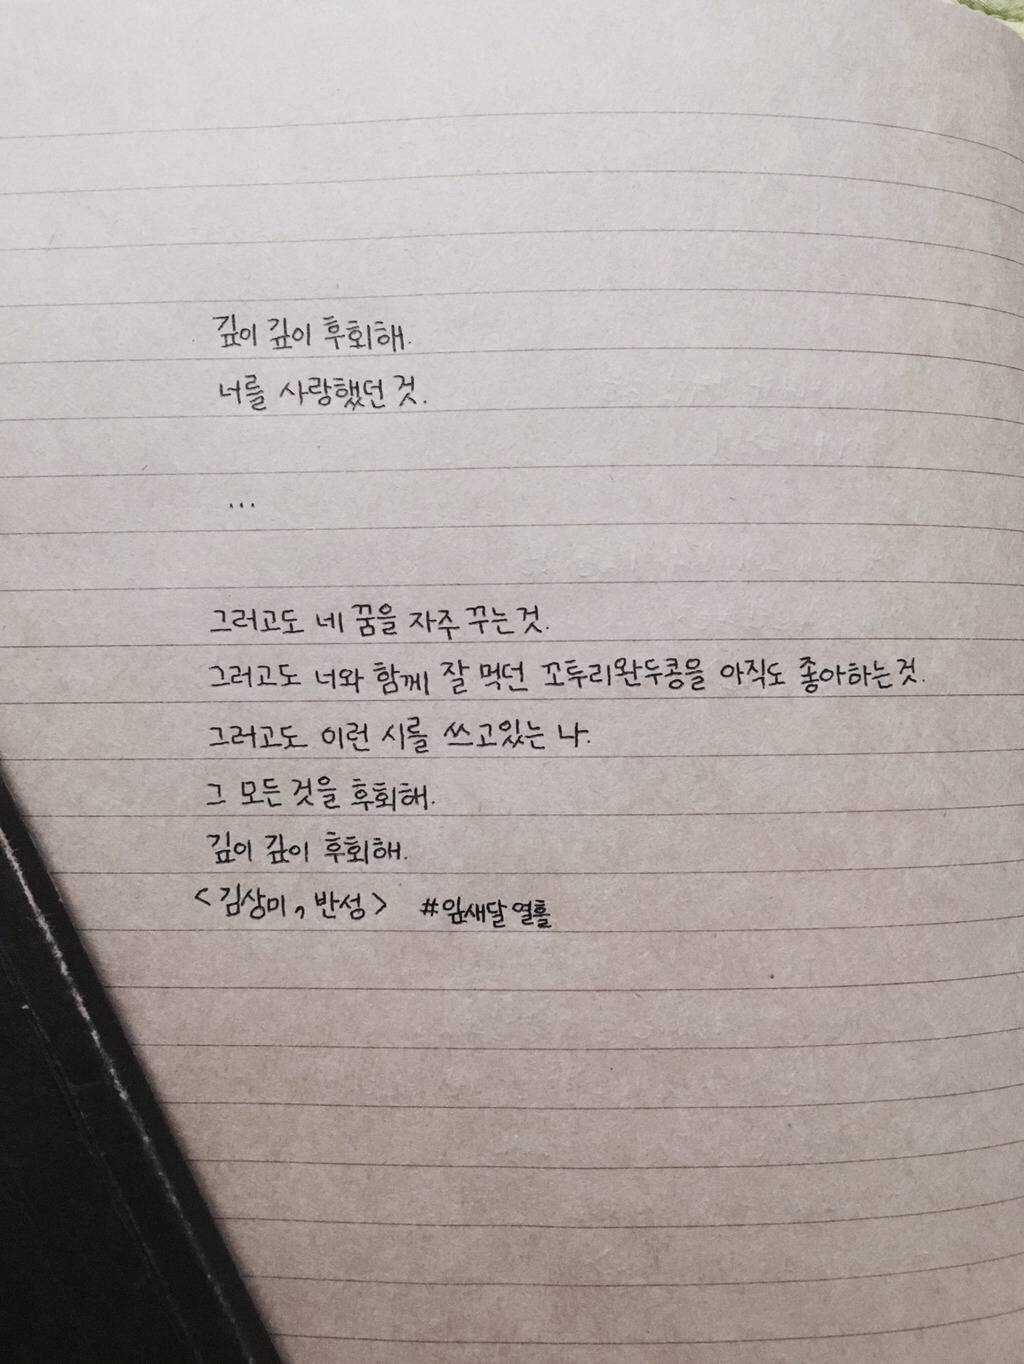 깊이 깊이 후회해.
너를 사랑했던 것.
...
그러고도 네 꿈을 자주 꾸는것.
그러고도 너와 함께 잘 먹던 꼬투리완두콩을 아직도 좋아하는것.
그러고도 이런 시를 쓰고있는 나.
그 모든 것을 후회해.
깊이 깊이 후회해.
<김상미, 반성> #잎새달열흘